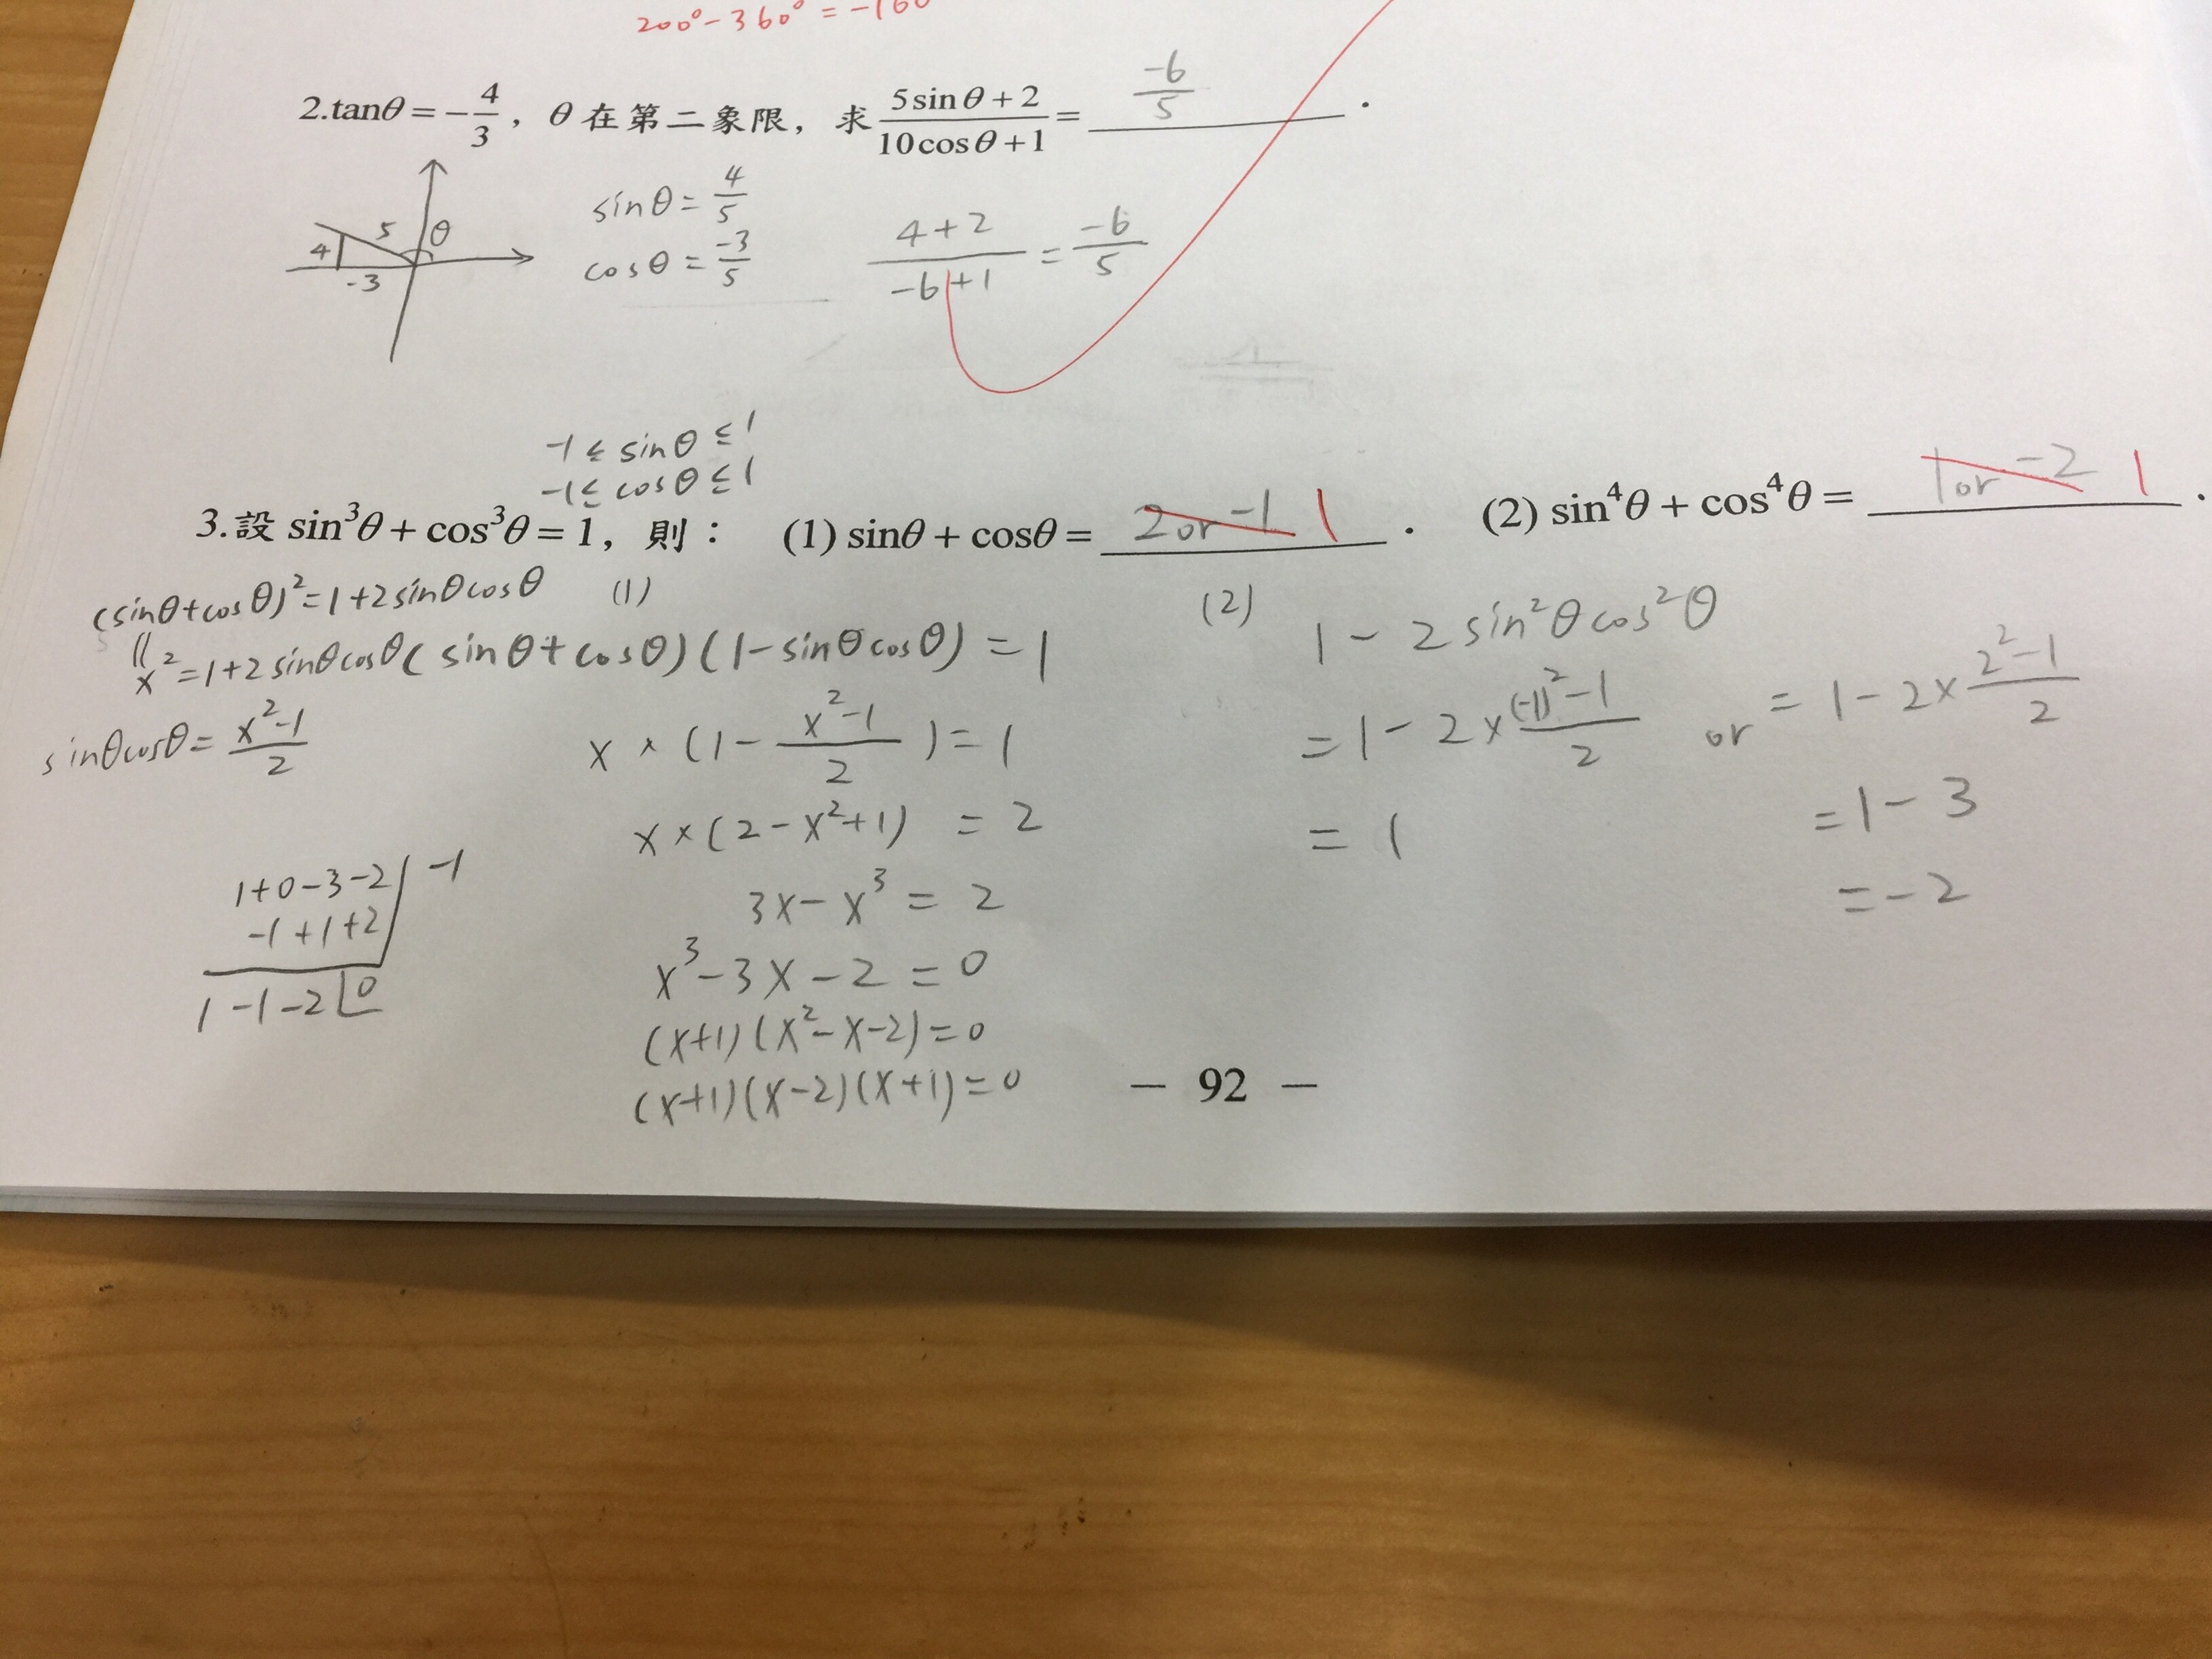 200° - 360° = -160
2. tanθ = -4/3，θ 在第二象限，求 (5sinθ + 2)/(10cosθ + 1) = -6/5 .
5 θ
4
-3
sinθ = 4/5
cosθ = -3/5
(4+2)/(-6+1) = -6/5
-1 ≤ sinθ ≤ 1
-1 ≤ cosθ ≤ 1
3. 設 sin³θ + cos³θ = 1，則： (1) sinθ + cosθ = 2 or -1 1 . (2) sin⁴θ + cos⁴θ = 1 or -2 1 .
(sinθ+cosθ)² = 1+2sinθcosθ
x² = 1+2sinθcosθ
sinθcosθ = (x²-1)/2
1+0-3-2 | -1
-1+1+2
1-1-2 | 0
(1)
(sinθ+cosθ)(1-sinθcosθ) = 1
x × (1 - (x²-1)/2) = 1
x × (2-x²+1) = 2
3x - x³ = 2
x³ - 3x - 2 = 0
(x+1)(x²-x-2) = 0
(x+1)(x-2)(x+1) = 0
(2)
1 - 2sin²θcos²θ
= 1 - 2 × ((-1)²-1)/2 or = 1 - 2 × (2²-1)/2
= 1
= 1 - 3
= -2
— 92 —